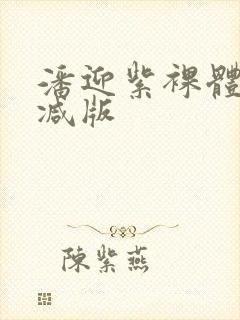 潘迎紫裸體
减版
陳紫燕